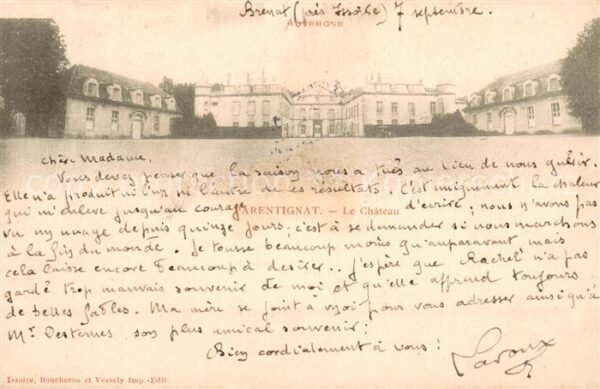 Brenat (près Issoire) 7 septembre.
AUVERGNE
Chère Madame,
Vous devez penser que la saison nous a tués au lieu de nous guérir.
Elle n'a produit ni l'un ni l'autre de ces résultats : c'est uniquement la chaleur
qui m'enlève jusqu'au courage d'écrire ; nous n'avons pas
PARENTIGNAT. — Le Château
vu un nuage depuis quinze jours ; c'est à se demander si nous marchons
à la fin du monde. Je tousse beaucoup moins qu'auparavant, mais
cela laisse encore beaucoup à désirer.. J'espère que Rachel n'a pas
gardé trop mauvais souvenir de moi et qu'elle apprend toujours
de belles fables. Ma mère se joint à moi pour vous adresser ainsi qu'à
Mr. son plus amical souvenir.
Bien cordialement à vous :
Issoire, Boucheron et Vessely Imp.-Edit